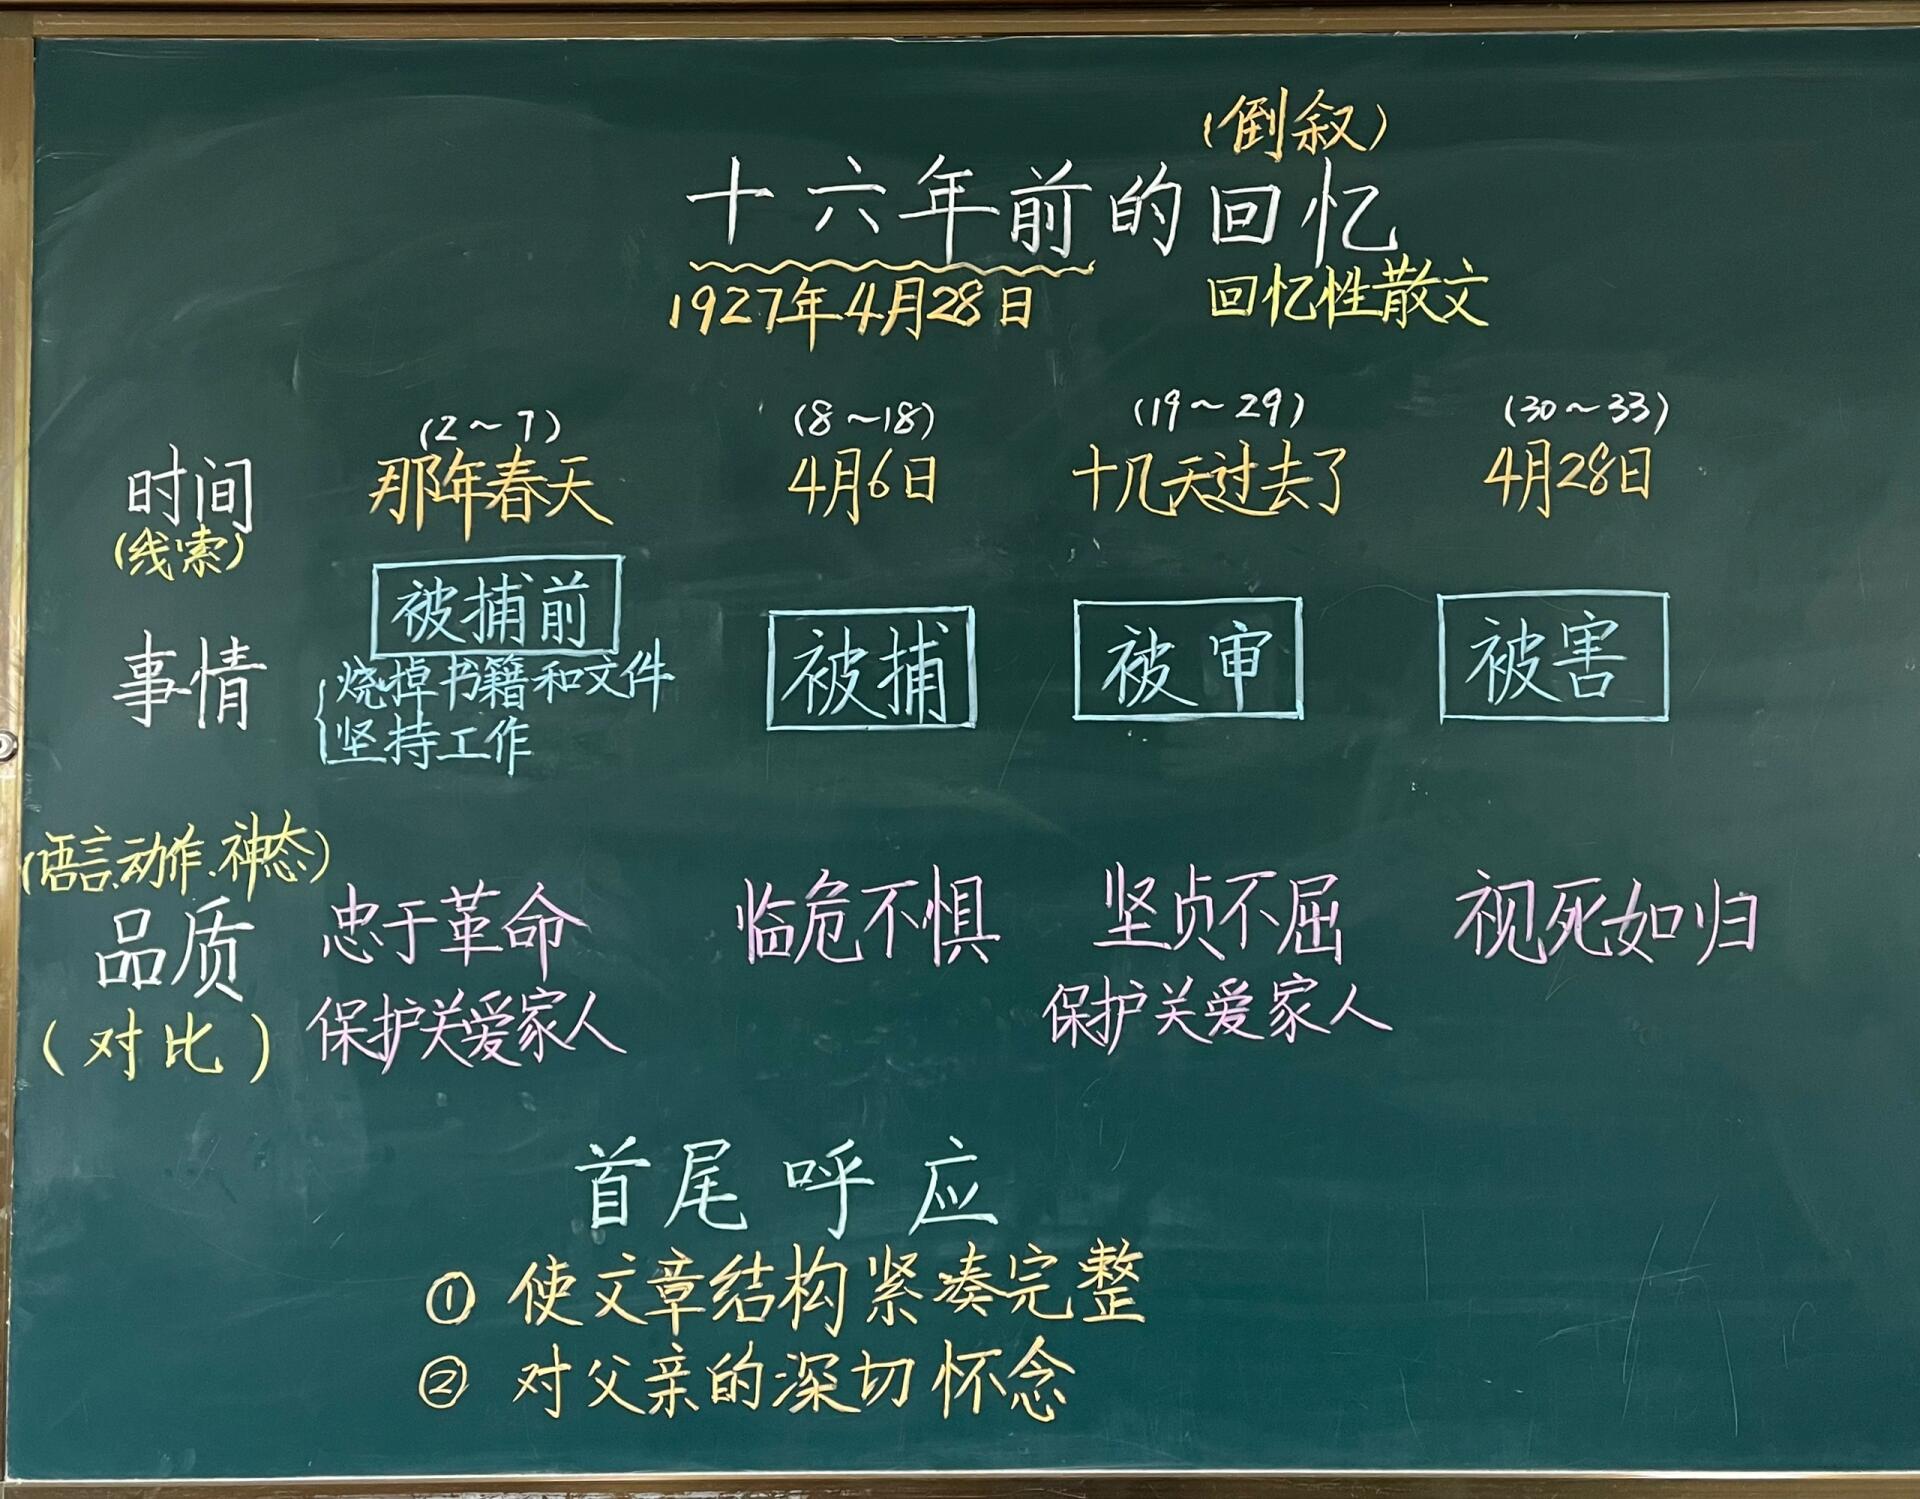 (倒叙)
十六年前的回忆
1927年4月28日 回忆性散文
(2~7) (8~18) (19~29) (30~33)
时间 那年春天 4月6日 十几天过去了 4月28日
(线索)
被捕前
事情 被捕 被审 被害
烧掉书籍和文件
坚持工作
(语言、动作、神态)
品质 忠于革命 临危不惧 坚贞不屈 视死如归
(对比) 保护关爱家人 保护关爱家人
首尾呼应
① 使文章结构紧凑完整
② 对父亲的深切怀念